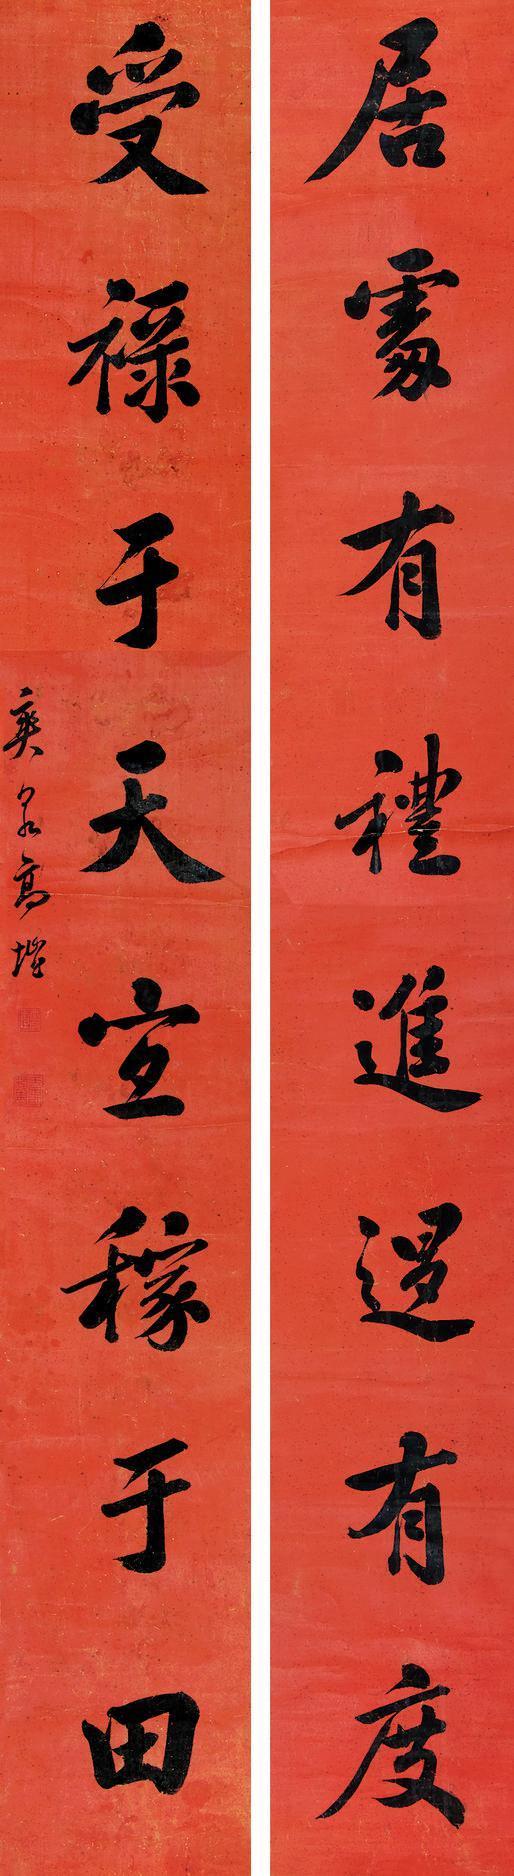 居處有禮進退有度
受祿于天宜稼于田
爽泉高塏